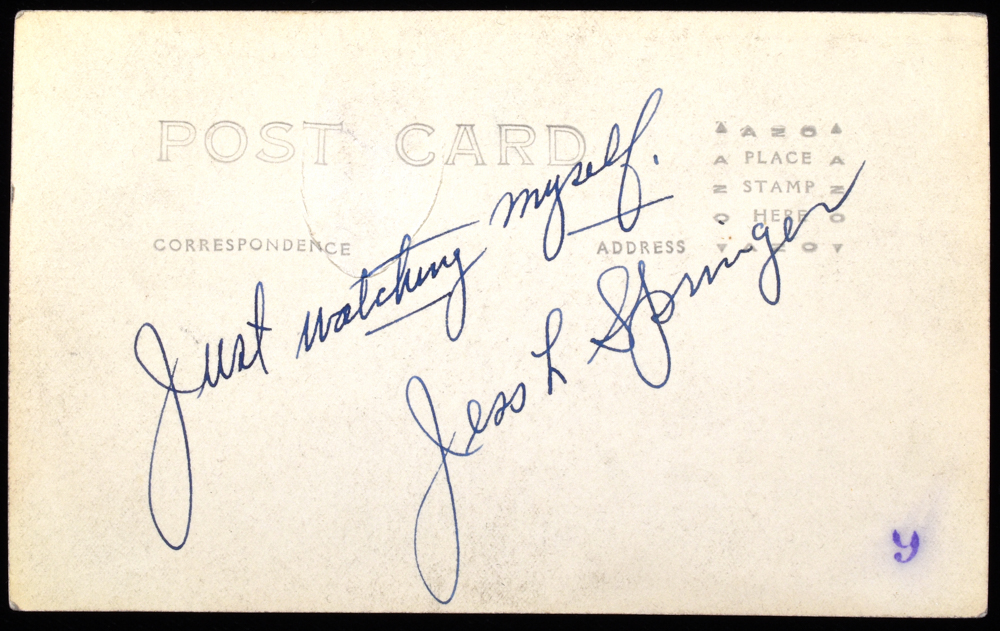 POST CARD
▲ A Z O ▲
A PLACE A
Z STAMP Z
O HERE O
▼ A Z O ▼
CORRESPONDENCE
ADDRESS
Just watching myself.
Jess L Springer
y